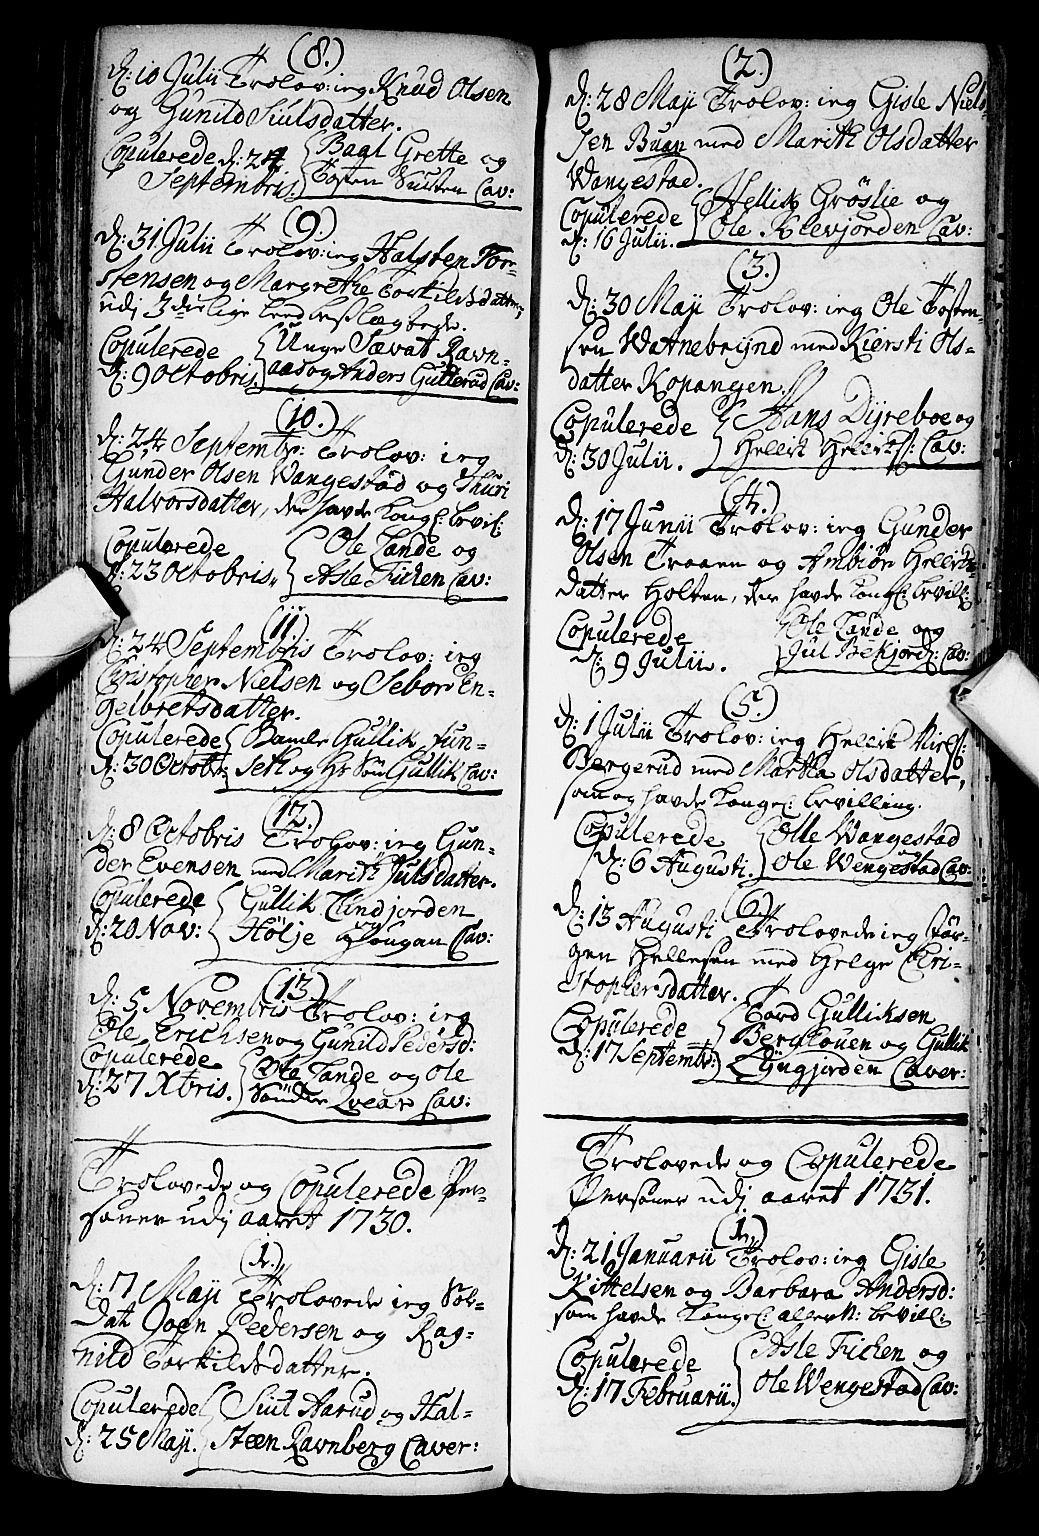 (8.)
d: 10 Julii Trolov: ieg Knud Olsen
og Gunild Siulsdatter.
Copulerede d: 24
Septembris.
Bagl Grette og
Tosten Cav:
(9.)
d: 31 Julii Trolov: ieg Halsten Tor-
stensen og Margrethe Torkildsdatter,
udj 3die lige leed beslægtede.
Copulerede
d: 9 Octobris
Unge Sævat Ravn-
aas og Anders Gutterud Cav:
(10.)
d: 24 Septembr: Trolov: ieg
Gunder Olsen Wangestad og Thuri
Halvorsdatter, der hafde Kongl: bevil:
Copulerede
d: 23 Octobris.
Ole Lande og
Asle Ficken Cav:
(11.)
d: 24 Septembris Trolov: ieg
Christopher Nielsen og Sebor En-
gelbretsdatter.
Copulerede
d: 30 Octobr:
Gamle Gullik Jun-
Seth og Hs Søn Gullik Cav:
(12.)
d: 8 Octobris Trolov: ieg Gun-
der Evensen med Marith Julsdatter.
Copulerede
d: 20 Nov:
Gullik Lindjorden
Hølje og Hougan Cav:
(13.)
d: 5 Novembris Trolov: ieg
Ole Erichsen og Gunild Pedersd:
Copulerede
d: 27 Xbris.
Ole Lande og Ole
Søndre Qvear Cav:
Trolovede og Copulerede Per-
soner udj aaret 1730.
(1.)
d: 7 Maji Trolovede ieg Sol-
dat Joen Pedersen og Rag-
nild Torkildsdatter.
Copulerede
d: 25 Maji.
Siul Aarud og Hal-
steen Ravnberg Caver:
(2.)
d: 28 Maji Trolov: ieg Gisle Niel-
sen Buan med Marith Olsdatter
Wangestad.
Copulerede
d: 16 Julii.
Hellik Grøslie og
Ole Klevjorden Cav:
(3.)
d: 30 Maji Trolov: ieg Ole Tosten-
sen Watnebrÿnd med Kiersti Ols-
datter Kopangen.
Copulerede
d: 30 Julii.
Hans Dÿreboe og
Hellik Helliks: Cav:
(4.)
d: 17 Junii Trolov: ieg Gunder
Olsen Traaen og Ambiør Helliks-
datter Holten, der hafde Kongl: bevill:
Copulerede
d: 9 Julii.
Ole Lande og
Jul Bekjord: Cav:
(5.)
d: 1 Julii Trolov: ieg Hellik Niels:
Bergerud med Martha Olsdatter,
som og hafde Kongel: bevilling.
Copulerede
d: 6 Augusti.
Olle Wangestad
Ole Wengestad Cav:
(6.)
d: 13 Augusti Trolovede ieg Jør-
gen Hellesen med Helge Chri-
stophersdatter.
Copulerede
d: 17 Septembr:
Tord Gulliksen
Berglouen og Gullik
Lÿngjorden Caver:
Trolovede og Copulerede
Persóner udj aaret 1731.
(1.)
d: 21 Januarii Trolov: ieg Gisle
Kittelsen og Barbara Andersd:
som hafde Kongel: allern: bevill:
Copulerede
d: 17 Februarii.
Asle Ficken og
Ole Wengestad Cav: